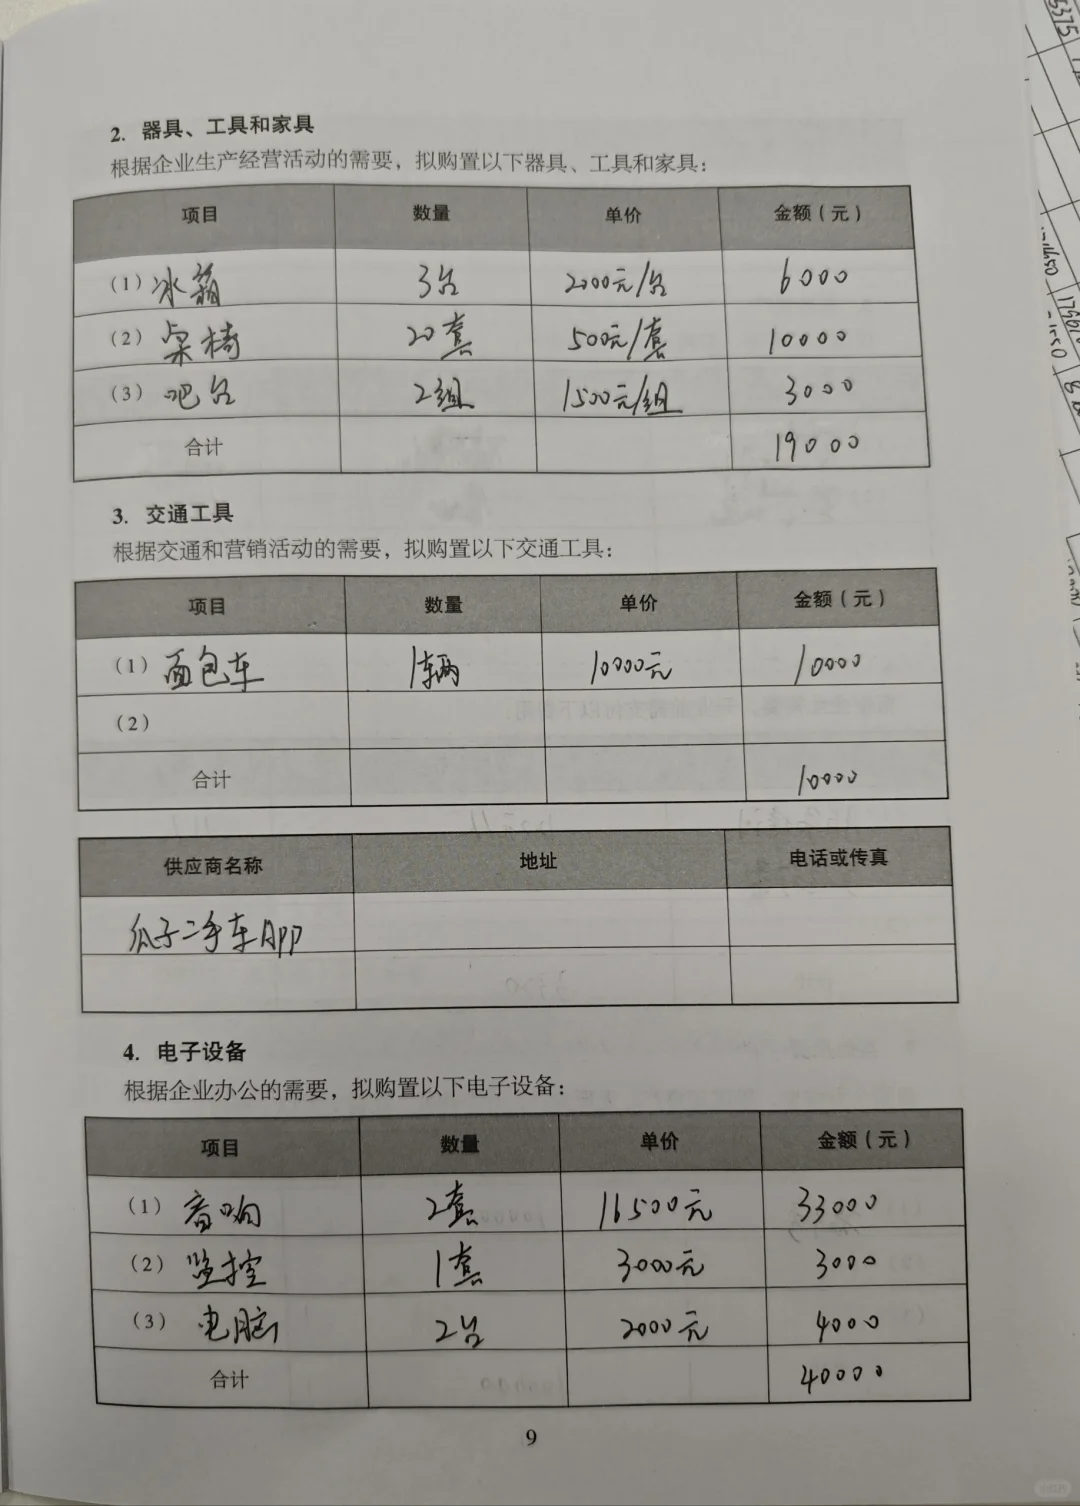 2. 器具、工具和家具
根据企业生产经营活动的需要，拟购置以下器具、工具和家具：
项目 数量 单价 金额（元）
（1）冰箱 3台 2000元/台 6000
（2）桌椅 20套 500元/套 10000
（3）吧台 2组 1500元/组 3000
合计 19000
3. 交通工具
根据交通和营销活动的需要，拟购置以下交通工具：
项目 数量 单价 金额（元）
（1）面包车 1辆 10000元 10000
（2）
合计 10000
供应商名称 地址 电话或传真
瓜子二手车App
4. 电子设备
根据企业办公的需要，拟购置以下电子设备：
项目 数量 单价 金额（元）
（1）音响 2套 16500元 33000
（2）监控 1套 3000元 3000
（3）电脑 2台 2000元 4000
合计 40000
9
5375